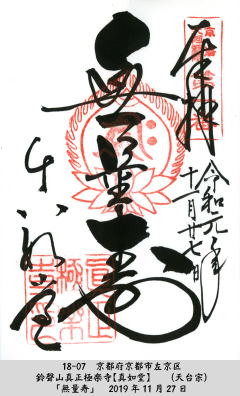 奉拝
令和元年
十一月廿七日
無量寿
真如堂
真正極楽寺
18-07 京都府京都市左京区
鈴聲山真正極楽寺【真如堂】 (天台宗)
「無量寿」 2019年11月27日